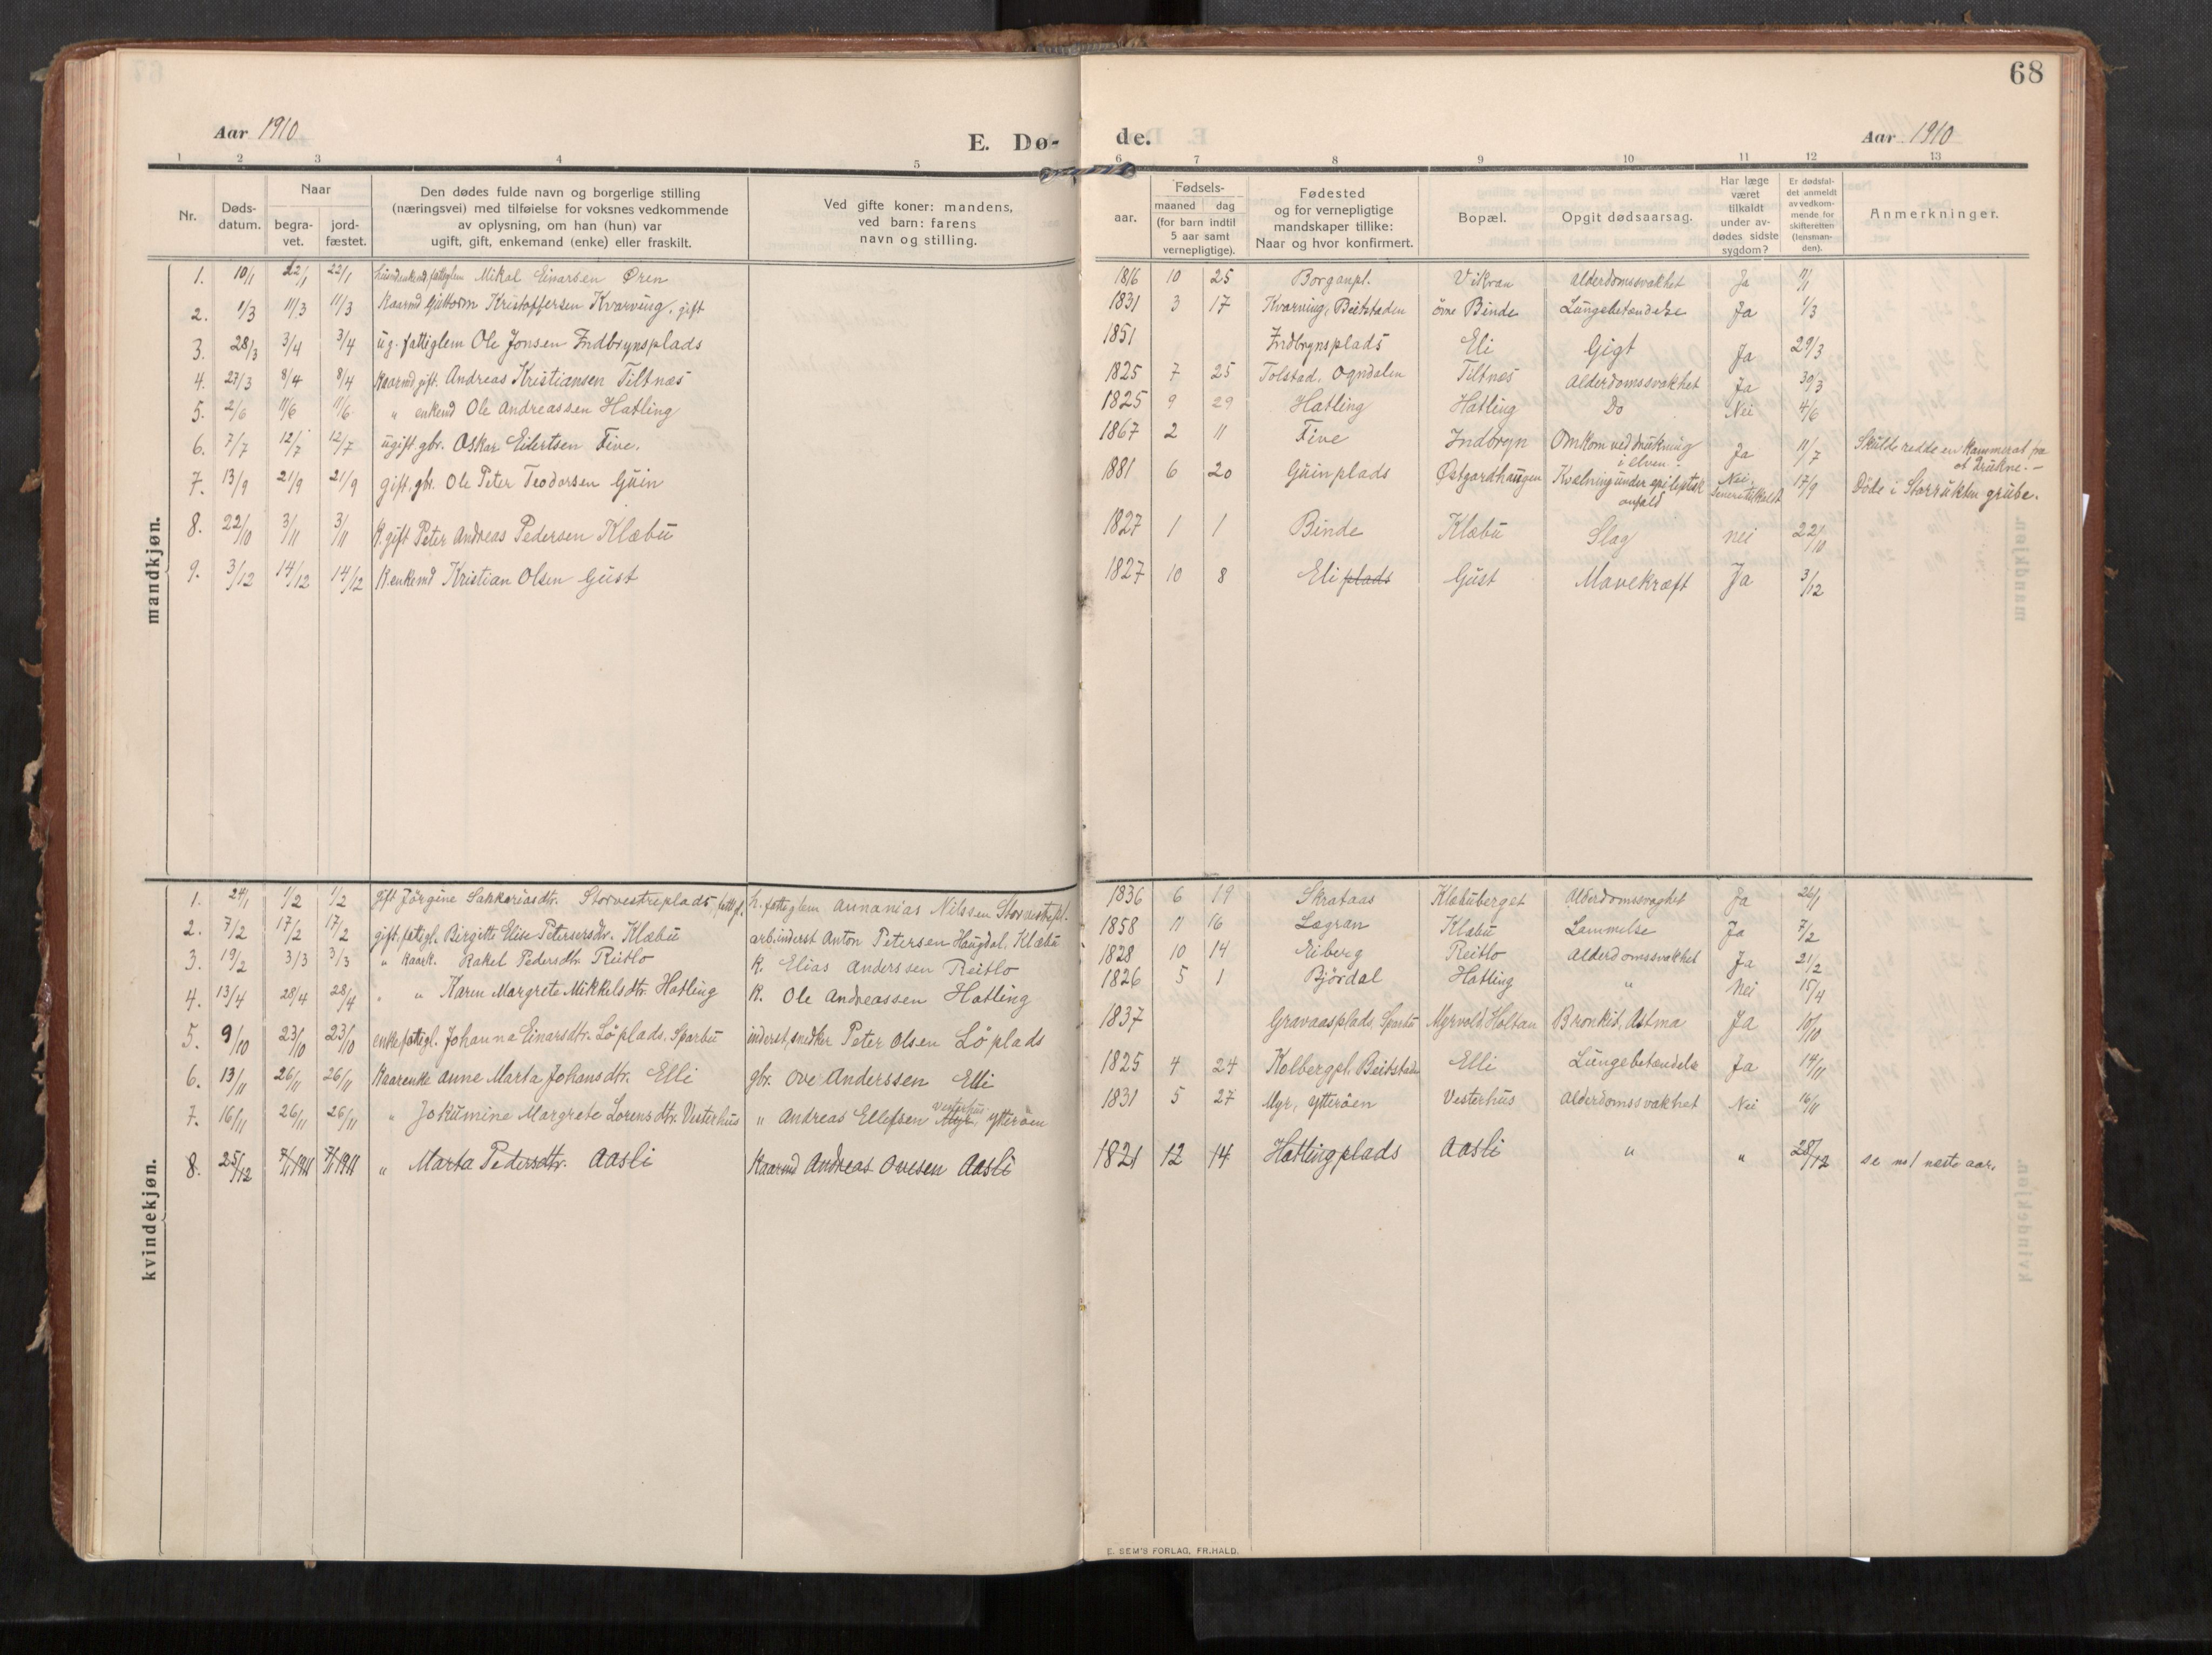 68
Aar 1910
E. Dø-
de.
Aar 1910
1 2 3 4 5 6 7 8 9 10 11 12 13
Nr.
Døds-
datum.
Naar
begra-
vet.
jord-
fæstet.
Den dødes fulde navn og borgerlige stilling
(næringsvei) med tilføielse for voksnes vedkommende
av oplysning, om han (hun) var
ugift, gift, enkemand (enke) eller fraskilt.
Ved gifte koner: mandens,
ved barn: farens
navn og stilling.
aar.
Fødsels-
maaned dag
(for barn indtil
5 aar samt
vernepligtige).
Fødested
og for vernepligtige
mandskaper tillike:
Naar og hvor konfirmert.
Bopæl.
Opgit dødsaarsag.
Har læge
været
tilkaldt
under av-
dødes sidste
sygdom?
Er dødsfal-
det anmeldt
av vedkom-
mende for
skifteretten
(lensman-
den).
Anmerkninger.
mandkjøn.
1. 10/1 22/1 22/1 fatteglem Mikal Einarsen Øren 1816 10 25 Borganpl. Vikvan Alderdomssvakhet Ja 11/1
2. 1/3 11/3 11/3 Kaarmd Guttorm Kristoffersen Kvarving, gift 1831 3 17 Kvarving, Beitstaden övre Binde Lungebetændelse Ja 1/3
3. 28/3 3/4 3/4 ug. fattiglem Ole Jonsen Indbrynsplads 1851 Indbrynsplads Eli Gigt Ja 29/3
4. 27/3 8/4 8/4 Kaarmd gift. Andreas Kristiansen Tiltnes 1825 7 25 Tolstad, Ogndalen Tiltnes Alderdomssvakhet Ja 30/3
5. 2/6 11/6 11/6 " enkemd Ole Andreassen Hatling 1825 9 29 Hatling Hatling Do Nei 4/6
6. 7/7 12/7 12/7 ugift. gbr. Oskar Eilertsen Five. 1867 2 11 Five Indbryn Omkom ved drukning Ja 11/7 Skulde redde en kammerat fra
i elven. at drukne. —
7. 13/9 21/9 21/9 gift. gbr. Ole Peter Teodorsen Guin 1881 6 20 Guinplads Østgardhaugen Kvælning under epileptisk Nei, 17/9 Döde i Starrukten grube.
anfald
8. 22/10 3/11 3/11 K. gift Peter Andreas Pedersen Klæbu 1827 1 1 Binde Klæbu Slag nei 22/10
9. 3/12 14/12 14/12 K. enkemd Kristian Olsen Gust 1827 10 8 Eli plads Gust Mavekræft Ja 3/12
kvindekjøn.
1. 24/1 1/2 1/2 gift Jörgine Sakkariasdtr. Storvestreplads, h. fatteglem Annanias Nilssen Storvestrepl. 1836 6 19 Skrataas Klæbuberget Alderdomssvaghet Ja 26/1
2. 7/2 17/2 17/2 gift, fatigl. Birgitte Elise Petersdtr. Klæbu arb. inderst Anton Petersen Haugdal, Klæbu 1858 11 16 Lægran Klæbu Lammelse Ja 7/2
3. 19/2 3/3 3/3 " kaark. Rakel Pedersdtr. Reitlo K. Elias Anderssen Reitlo 1828 10 14 Eiberg Reitlo Alderdomssvakhet Ja 21/2
4. 13/4 28/4 28/4 " " Karen Margrete Mikkelsdtr. Hatling K. Ole Andreassen Hatling 1826 5 1 Björdal Hatling " Nei 15/4
5. 9/10 23/10 23/10 enke, fatigl. Johanna Einarsdtr. Löplads, Sparbu inderst, snedker Peter Olsen Löplads 1837 Gravaasplads, Sparbu Myrvold, Holtan Bronkit, Astma Ja 10/10
6. 13/11 26/11 26/11 Kaarenke Anne Marta Johansdtr. Elli gbr. Ove Anderssen Elli 1825 4 24 Kolbergpl. Beitstad Elli Lungebetændelse Ja 14/11
7. 16/11 26/11 26/11 " Jokumine Margrete Lorensdtr. Vesterhus " Andreas Ellefsen Myr, Vesterhus Ytteröen 1831 5 27 Myr, Ytteröen Vesterhus Alderdomssvakhet Nei 16/11
8. 25/12 7/1 1911 7/1 1911 " Marta Pedersdtr. Aasli Kaarmd Andreas Ovesen Aasli 1821 12 14 Hatlingplads Aasli " " 28/12 se no 1 næste aar.
E. SEM'S FORLAG, FR.HALD.